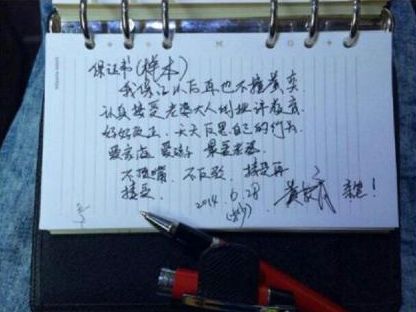 保证书(样本)
我保证以后再也不撞黄灯
认真接受老婆大人的批评教育
好好改正、天天反思自己的行为
爱家庭 爱孩子 最爱老婆
不顶嘴、不反驳、接受再
接受
2014.6.28
亲笔!